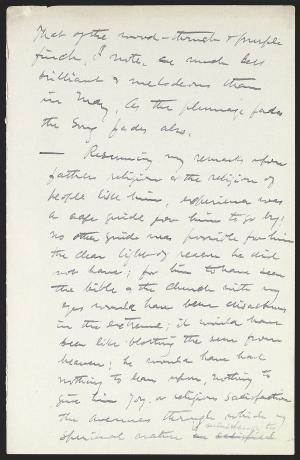 That of the wood-thrush & purple
finch, I note, are much less
brilliant & melodious than
in May. As the plumage fades
the song fades also.
— Resuming my remarks upon
fathers religion & the religion of
people like him, experience was
a safe guide for him to go by;
no other guide was possible for him
the clear light of reason he did
not have; for him to have seen
the bible & the church with my
eyes would have been disastrous
in the extreme; it would have
been like blotting the sun from
heaven; he would have had
nothing to lean upon, nothing to
give him joy, or religious satisfaction
the avenues through which my
spiritual nature is satisfied